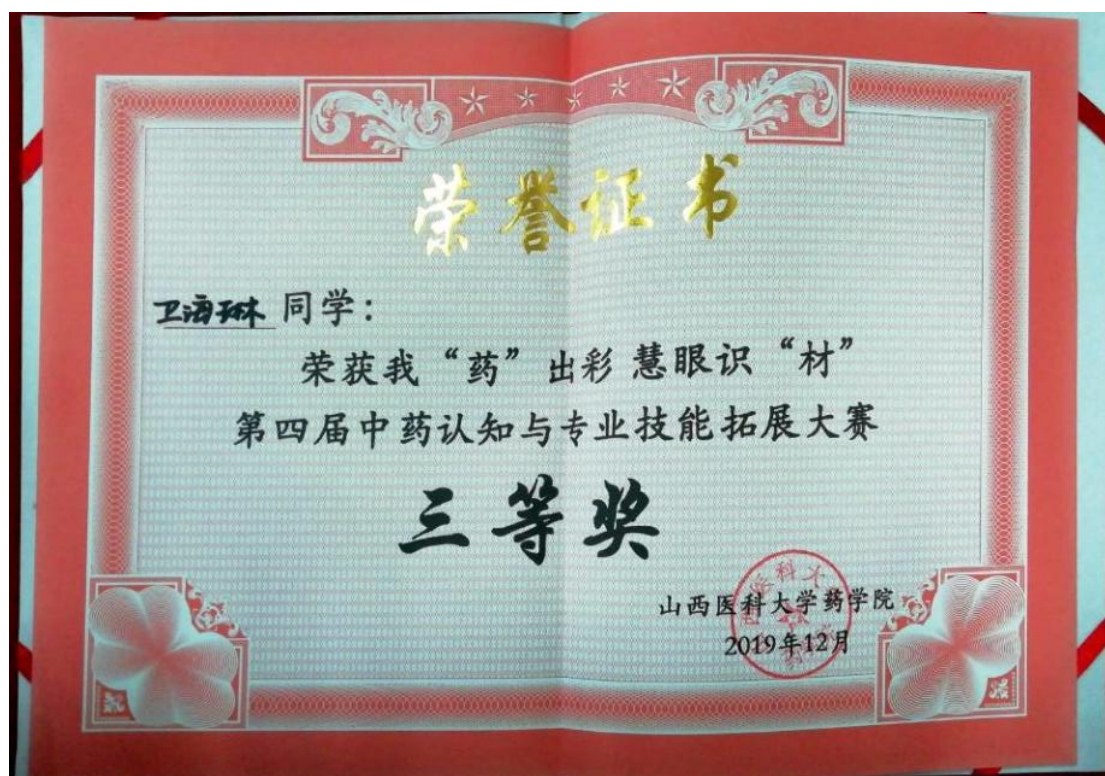 荣誉证书
卫海琳 同学：
荣获我“药”出彩 慧眼识“材”
第四届中药认知与专业技能拓展大赛
三等奖
山西医科大学药学院
2019年12月